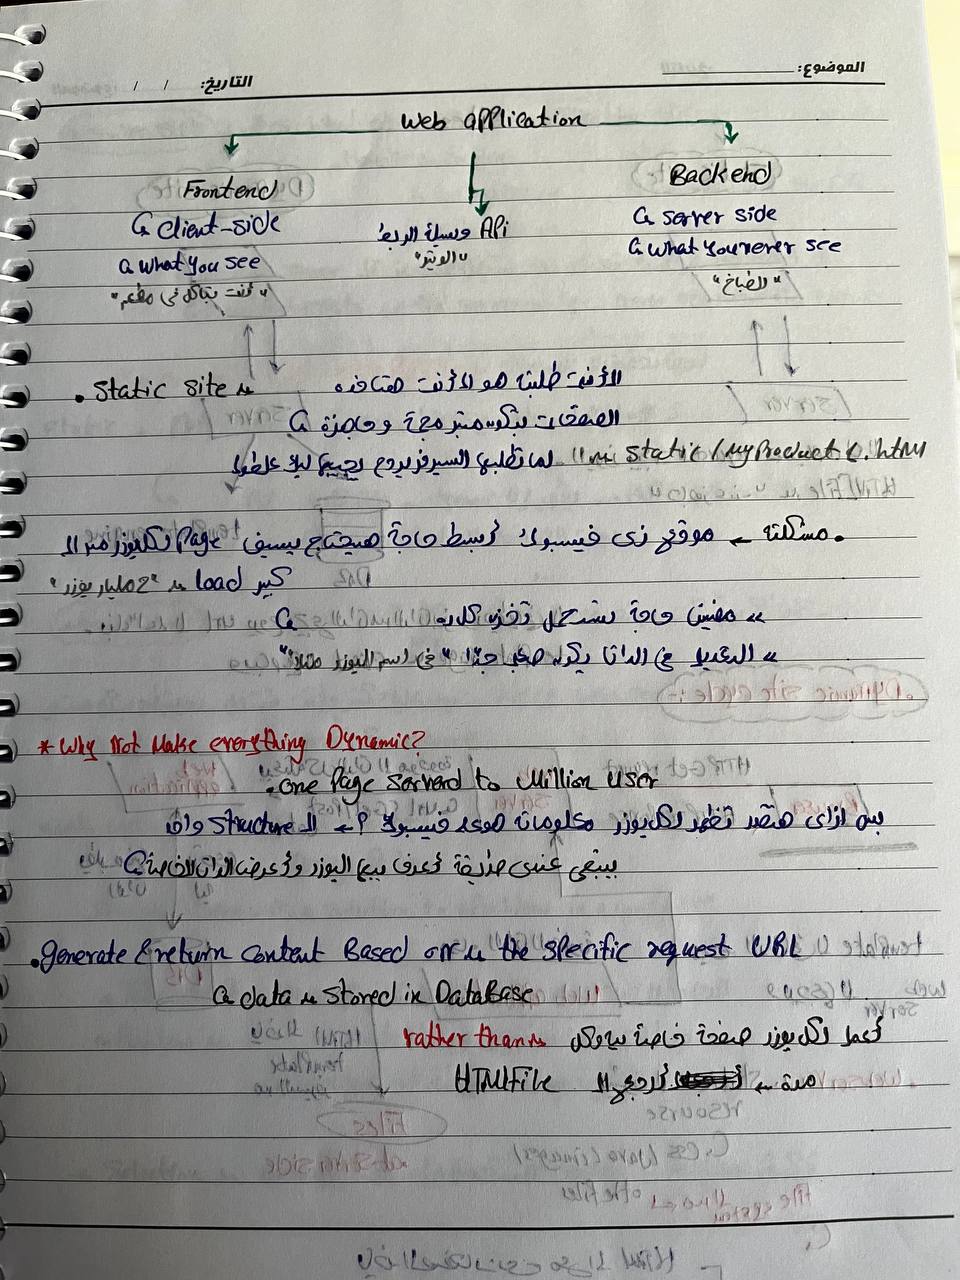 الموضوع:
التاريخ: / /
Web application
Frontend
client-side
what you see
"أنت بتاكل في مطعم"
API وسيلة الربط
"الويتر"
Backend
server side
what you never see
"الطباخ"
. Static site اللي أنت طلبته هو اللي أنت هتاخده
الصفحات بتكون متبرمجة وجاهزة
لما تطلبها السيرفر يروح يجيبها لك على طول static/myProduct.html
. مشكلته ← موقع زي فيسبوك أبسط حاجة هيحتاج يسيف Page لكل يوزر من الـ
"2 مليار يوزر" load كبير
" مفيش حاجة تستحمل تخزن كل ده
" التعديل في الداتا يكون صعب جدًا "في اسم اليوزر مثلا"
* Why Not Make everything Dynamic?
. one Page Serverd to Million User
بس ازاي هتقدر تظهر لكل يوزر معلوماته هو على فيسبوك؟ ← الـ structure واحد
يبقى عندي طريقة أعرف بيها اليوزر وأعرض الداتا الخاصة
. generate & return content Based on the specific request URL
data Stored in DataBase
أعمل لكل يوزر صفحة خاصة بيه وكل rather than
مرة ← أرجع الـ HTML File